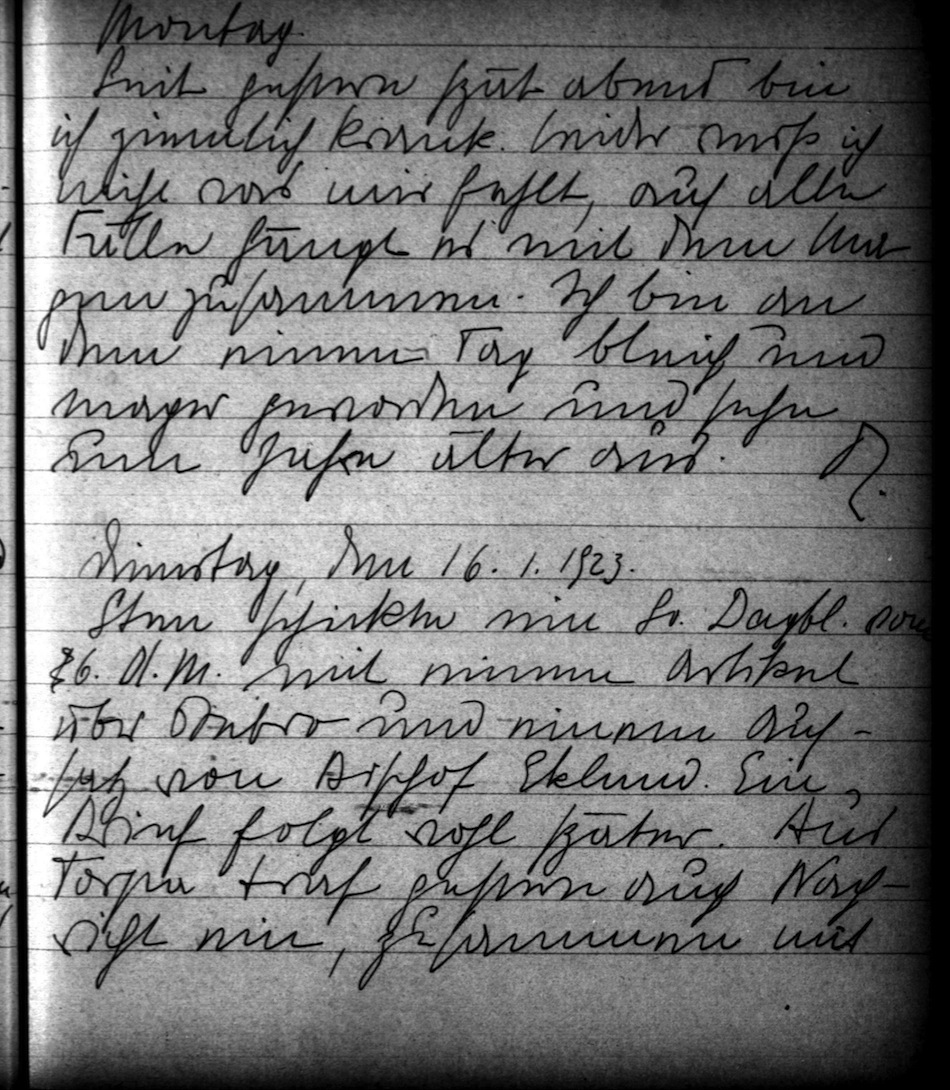 Montag.
Seit gestern spät abend bin
ich ziemlich krank. Leider weiß ich
nicht was mir fehlt, auf alle
Fälle hängt es mit dem Ma-
gen zusammen. Ich bin an
dem einen Tag bleich und
mager geworden und sehe
um Jahre älter aus.
Dienstag, den 16. 1. 1923.
Sten schickte ein Sv. Dagbl. vom
6. d. M. mit einem Artikel
über und einem Auf-
satz von Bischof Eklund. Ein
Brief folgt wohl später. Aus
Torpa traf gestern auch Nach-
richt ein, zusammen mit